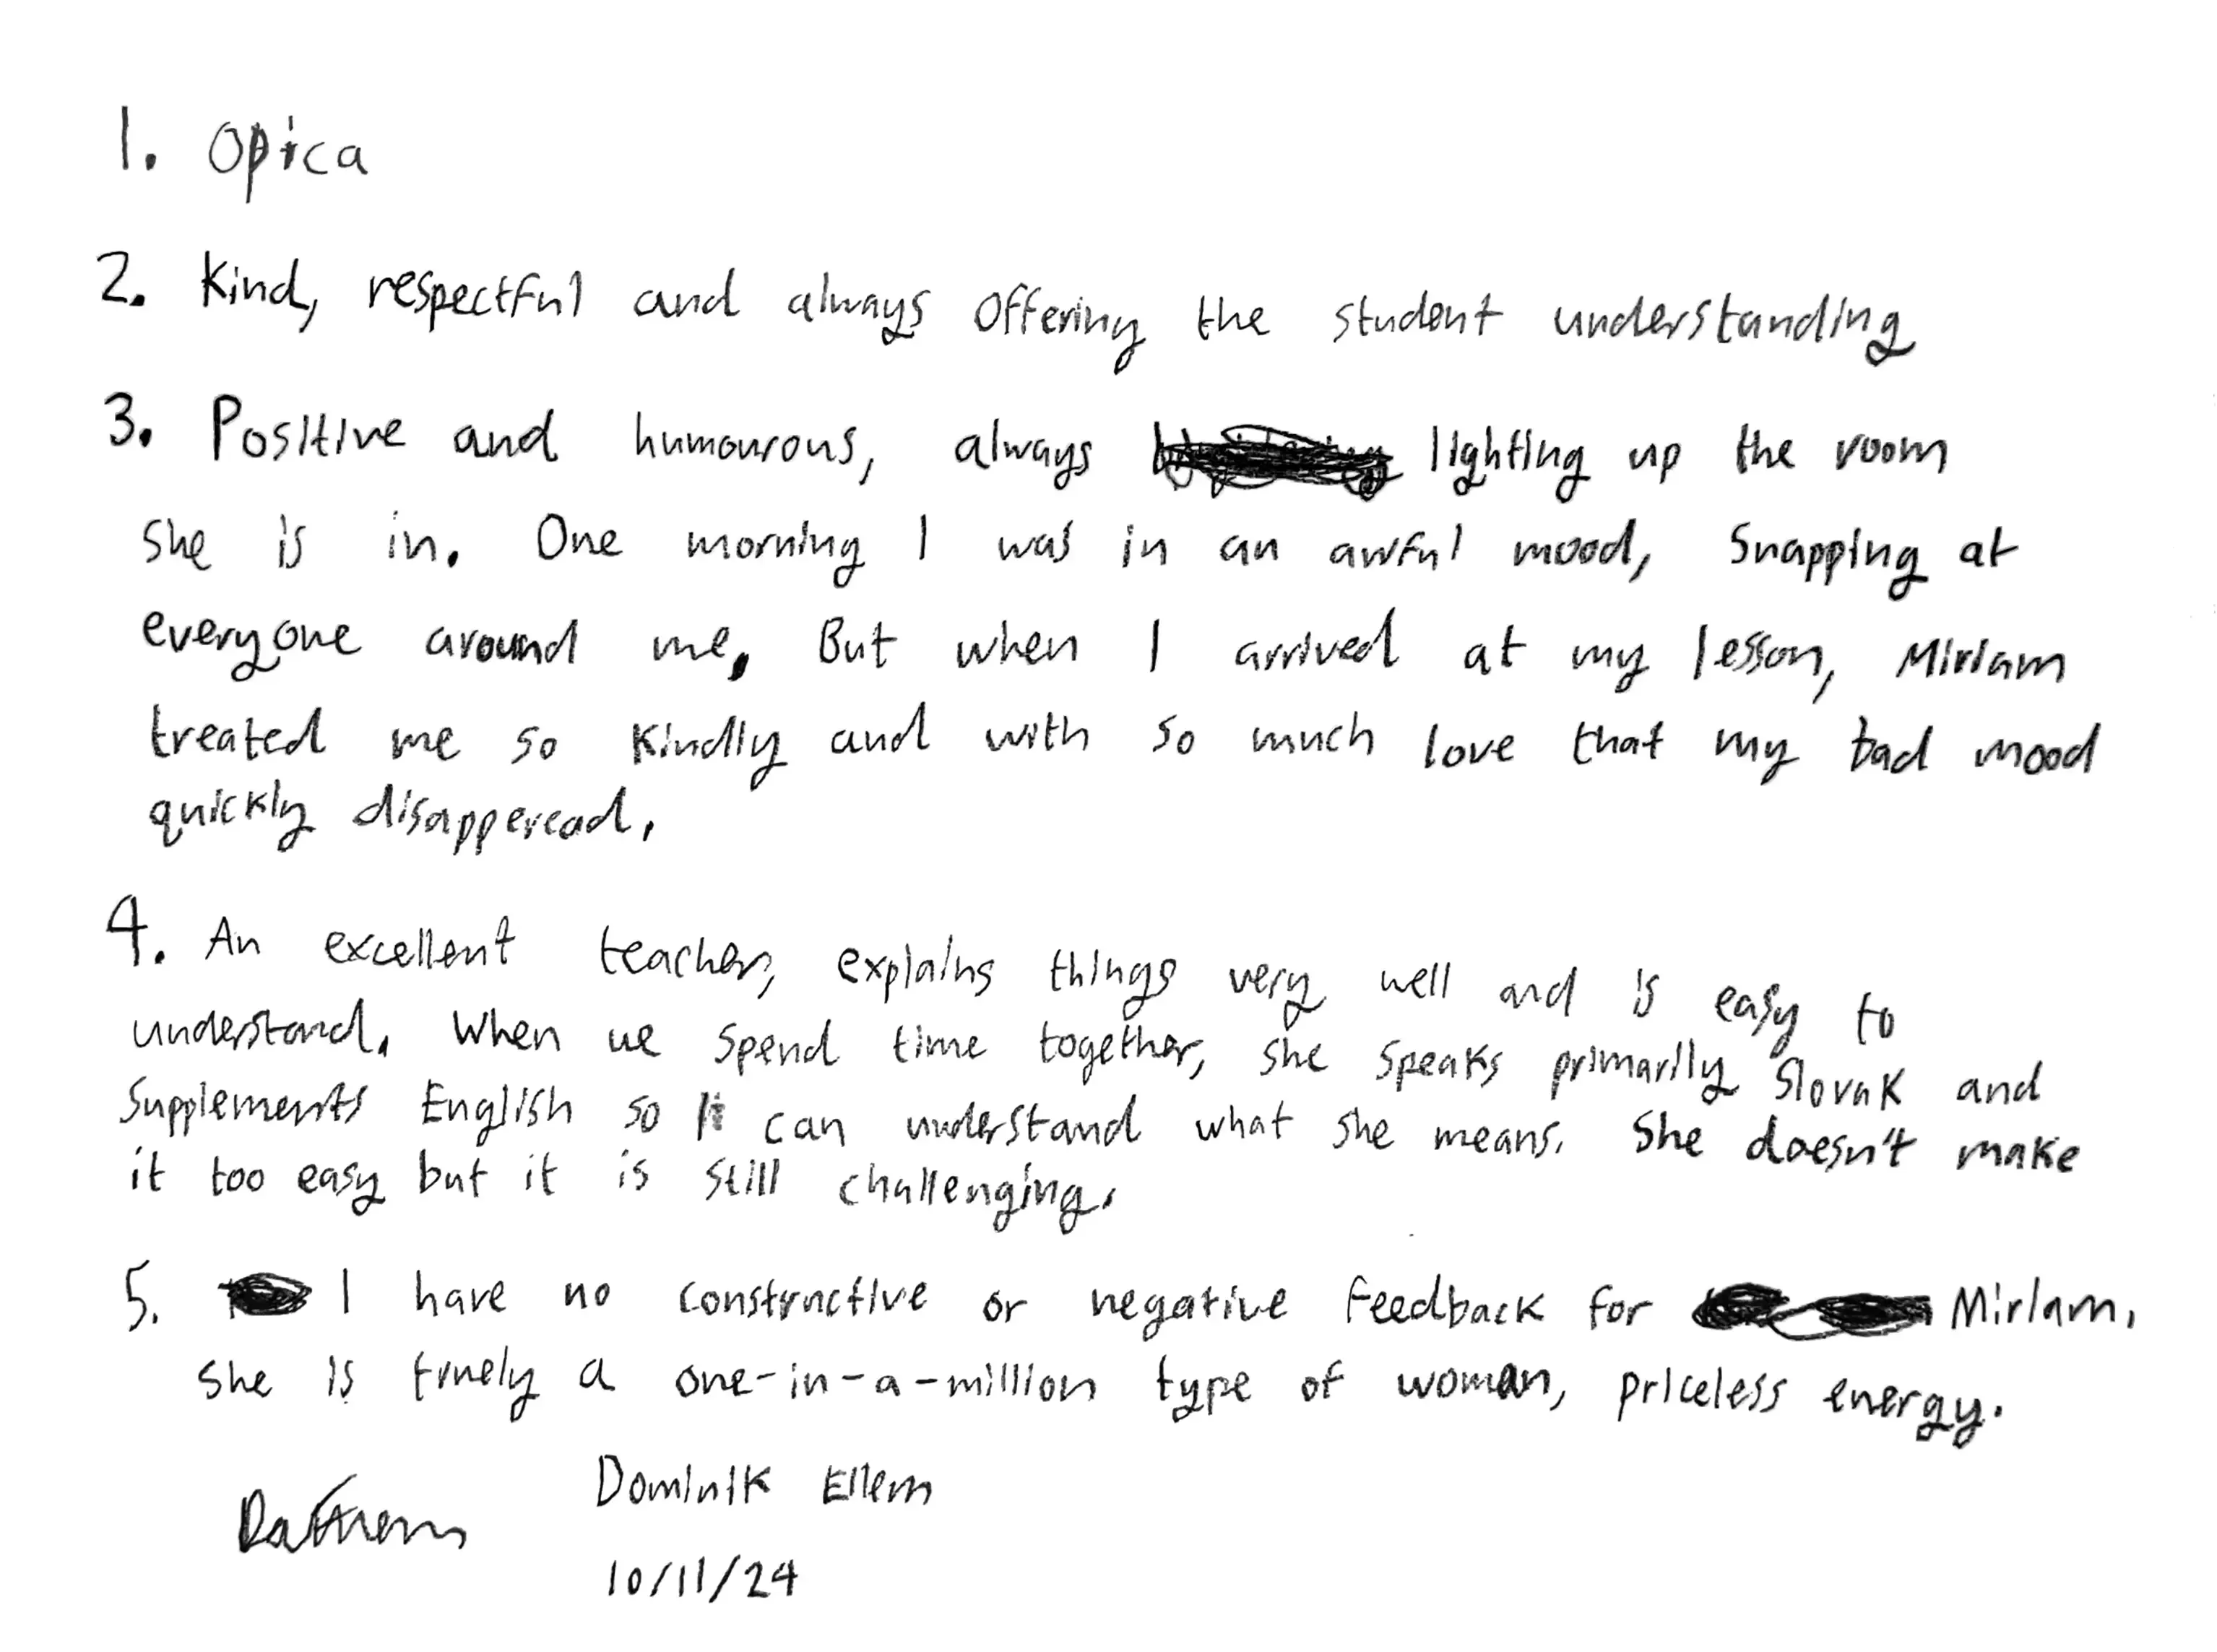 1. Opica
2. Kind, respectful and always offering the student understanding
3. Positive and humourous, always lighting up the room
she is in. One morning I was in an awful mood, snapping at
everyone around me. But when I arrived at my lesson, Miriam
treated me so kindly and with so much love that my bad mood
quickly disapperead.
4. An excellent teacher, explains things very well and is easy to
understand. When we spend time together, she speaks primarily Slovak and
supplements English so I can understand what she means. She doesn't make
it too easy but it is still challenging.
5. I have no constructive or negative feedback for Miriam,
she is truely a one-in-a-million type of woman, priceless energy.
Dominik Ellem
10/11/24